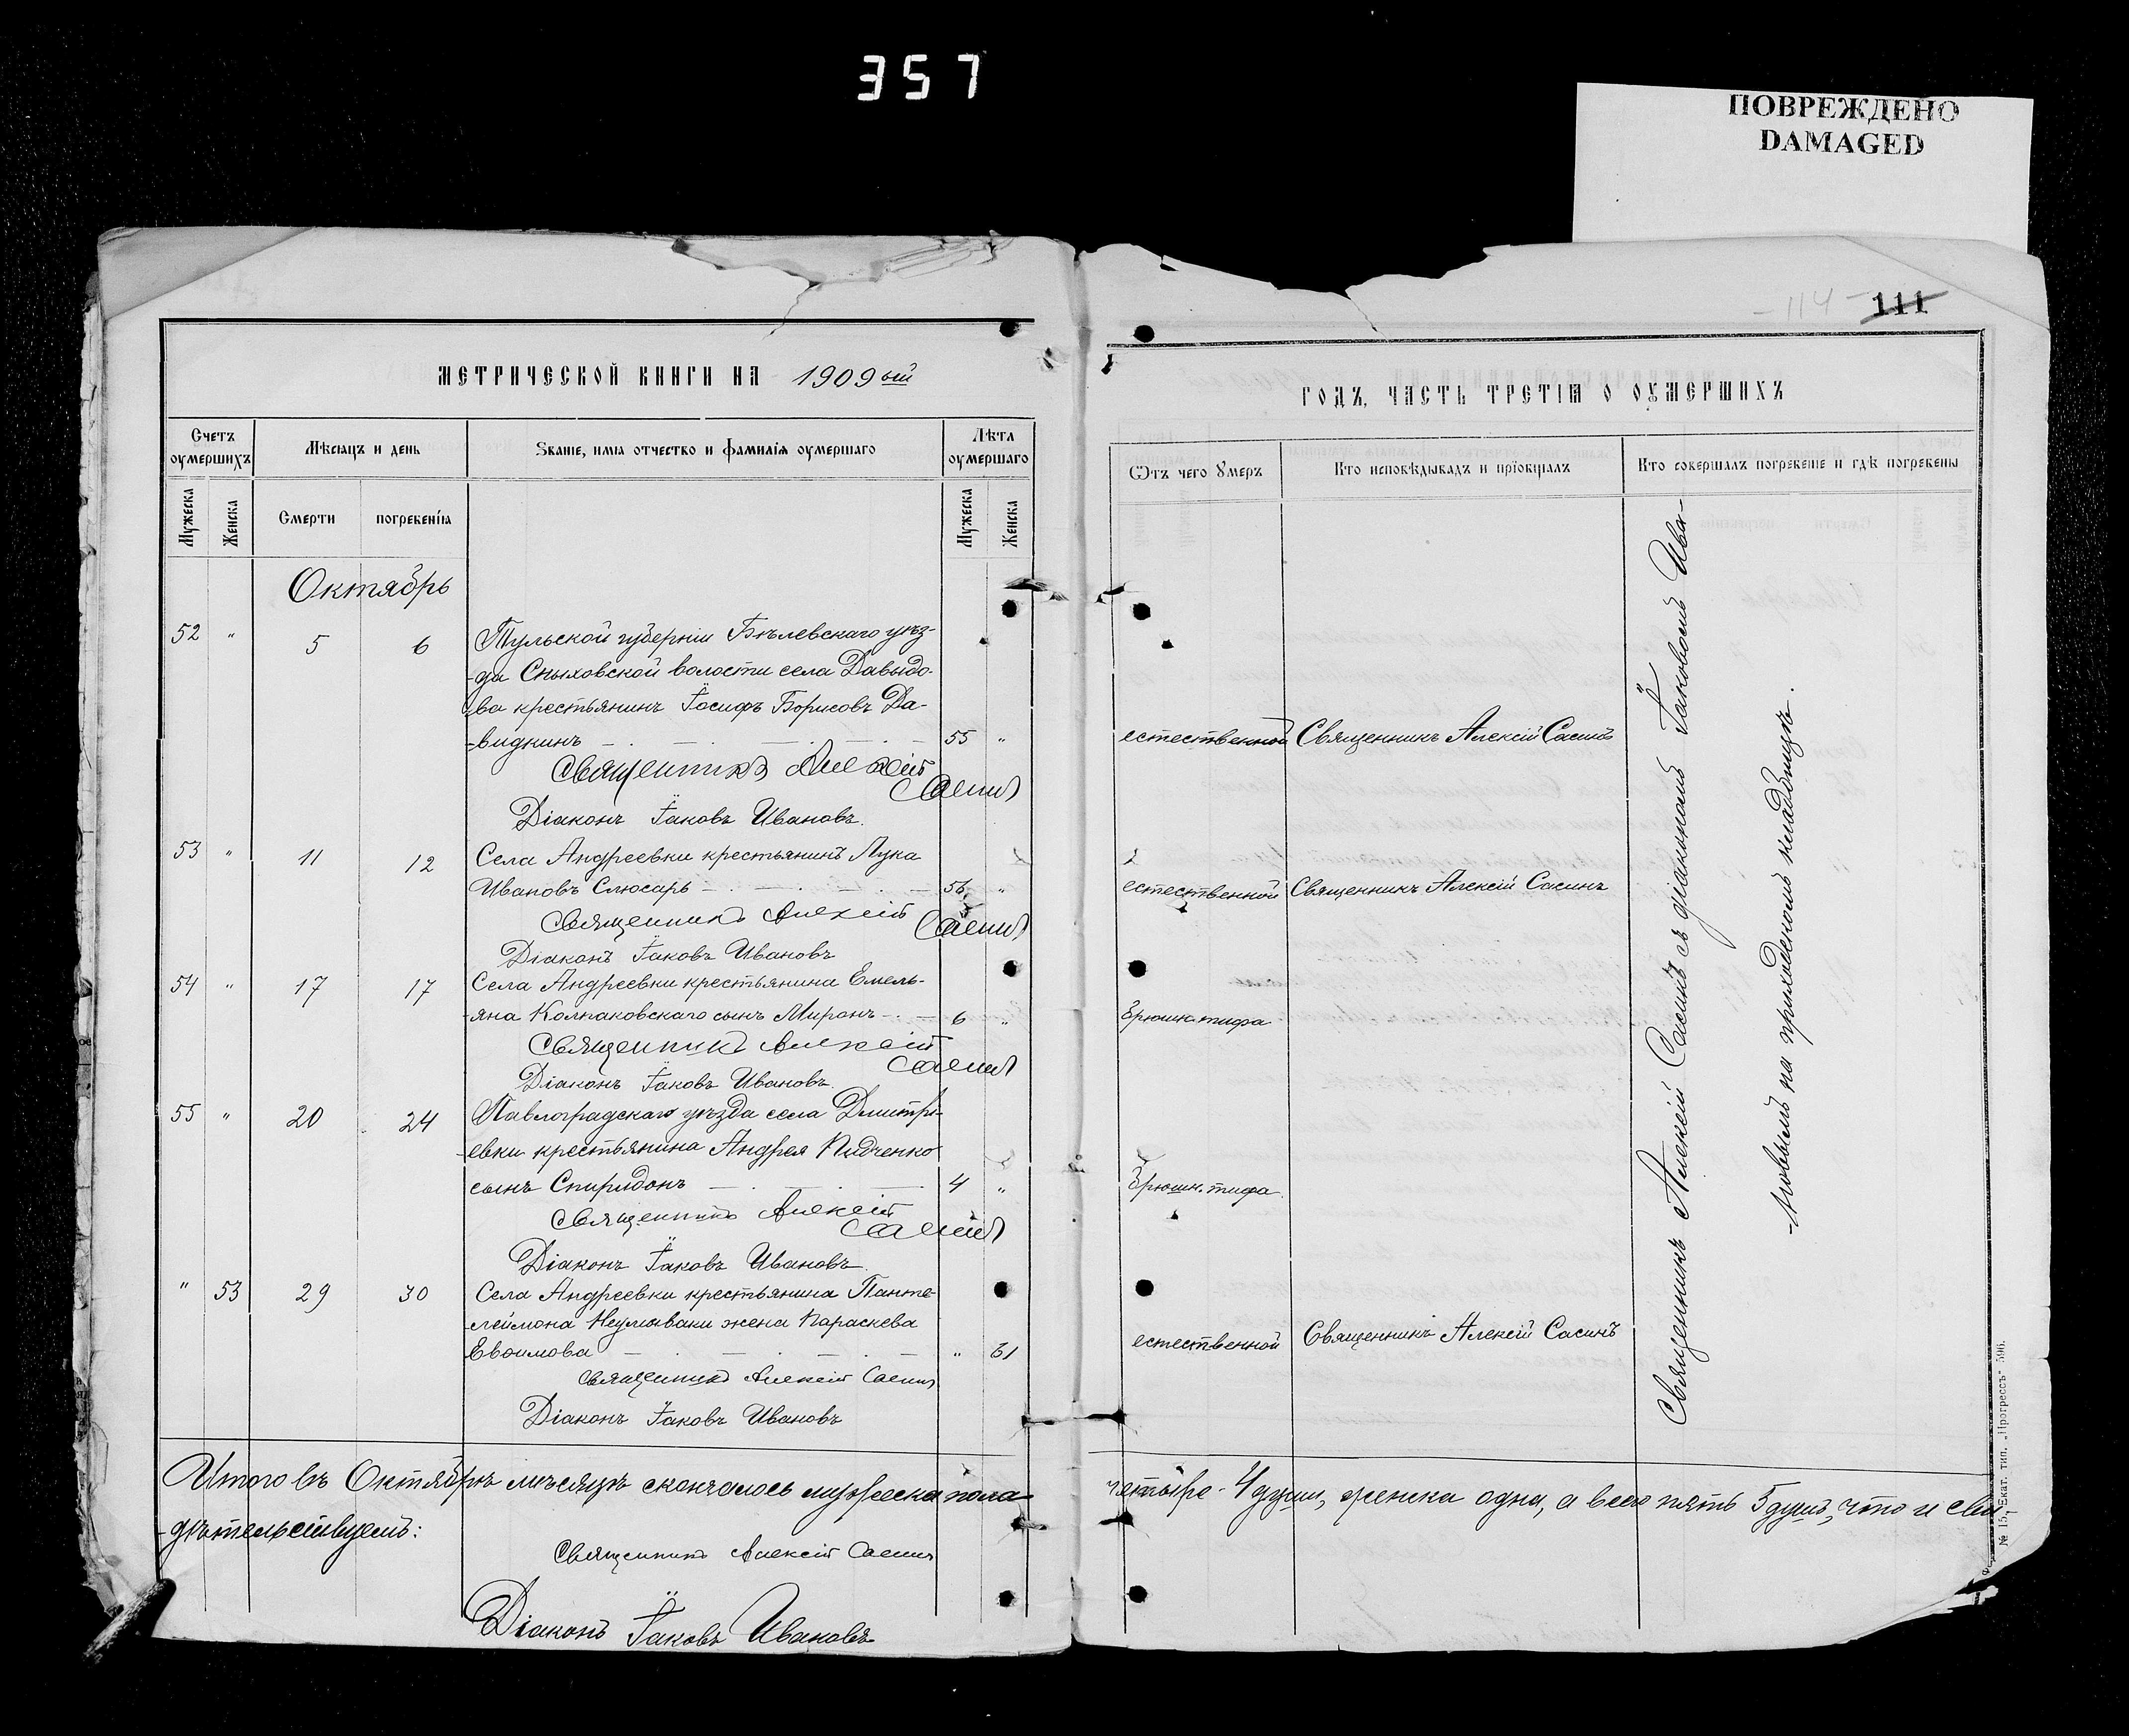 357
ПОВРЕЖДЕНО
DAMAGED
114
111
МЕТРИЧЕСКОЙ КНИГИ НА 1909ый
Счетъ оумершихъ
Мѣсяцъ и день
Званіе, имя отчество и фамилія оумершаго
Лѣта оумершаго
Мужеска
Женска
Смерти
погребенія
Мужеска
Женска
Октябрь
52 " 5 6 Тульской губерніи Бѣлевскаго уѣз-
-да Сныховской волости села Давыдо-
ва крестьянинъ Іосифъ Борисовъ Да-
-видкинъ 55 "
Священникъ Алексій
Сасинъ
Діаконъ Іаковъ Ивановъ.
53 " 11 12 Села Андреевки крестьянинъ Лука
Ивановъ Слюсарь 56 "
Священникъ Алексій
Сасинъ
Діаконъ Іаковъ Ивановъ
54 " 17 17 Села Андреевки крестьянина Емель-
-яна Колпаковскаго сынъ Миронъ 6 "
Священникъ Алексій
Сасинъ
Діаконъ Іаковъ Ивановъ.
55 " 20 24 Павлоградскаго уѣзда села Дмитрі-
-евки крестьянина Андрея Пидченко
сынъ Спиридонъ 4 "
Священникъ Алексій
Сасинъ
Діаконъ Іаковъ Ивановъ.
" 53 29 30 Села Андреевки крестьянина Панте-
-леймона Неумываки жена Параскева
Евоимова " 61
Священникъ Алексій Сасинъ
Діаконъ Іаковъ Ивановъ
Итого въ Октябрѣ мѣсяцѣ скончалось мужеска пола
-дѣтельствуемъ:
Священникъ Алексій Сасинъ
Діаконъ Іаковъ Ивановъ
ГОДЪ, ЧАСТЬ ТРЕТІЯ О ОУМЕРШИХЪ
Ѿтъ чего ѹмеръ
Кто исповѣдывалъ и пріобщалъ
Кто совершалъ погребеніе и гдѣ погребены
естественной Священникъ Алексій Сасинъ
естественной Священникъ Алексій Сасинъ
Брюшн. тифа
Брюшн. тифа
естественной Священникъ Алексій Сасинъ
Священникъ Алексій Сасинъ съ діакономъ Іаковомъ Ива-
-новымъ на приходскомъ кладбищѣ.
четыре - 4 души, женска одна, а всего пять 5 душъ, что и сви-
№ 15. Екат. тип. „Прогрессъ“ 596.